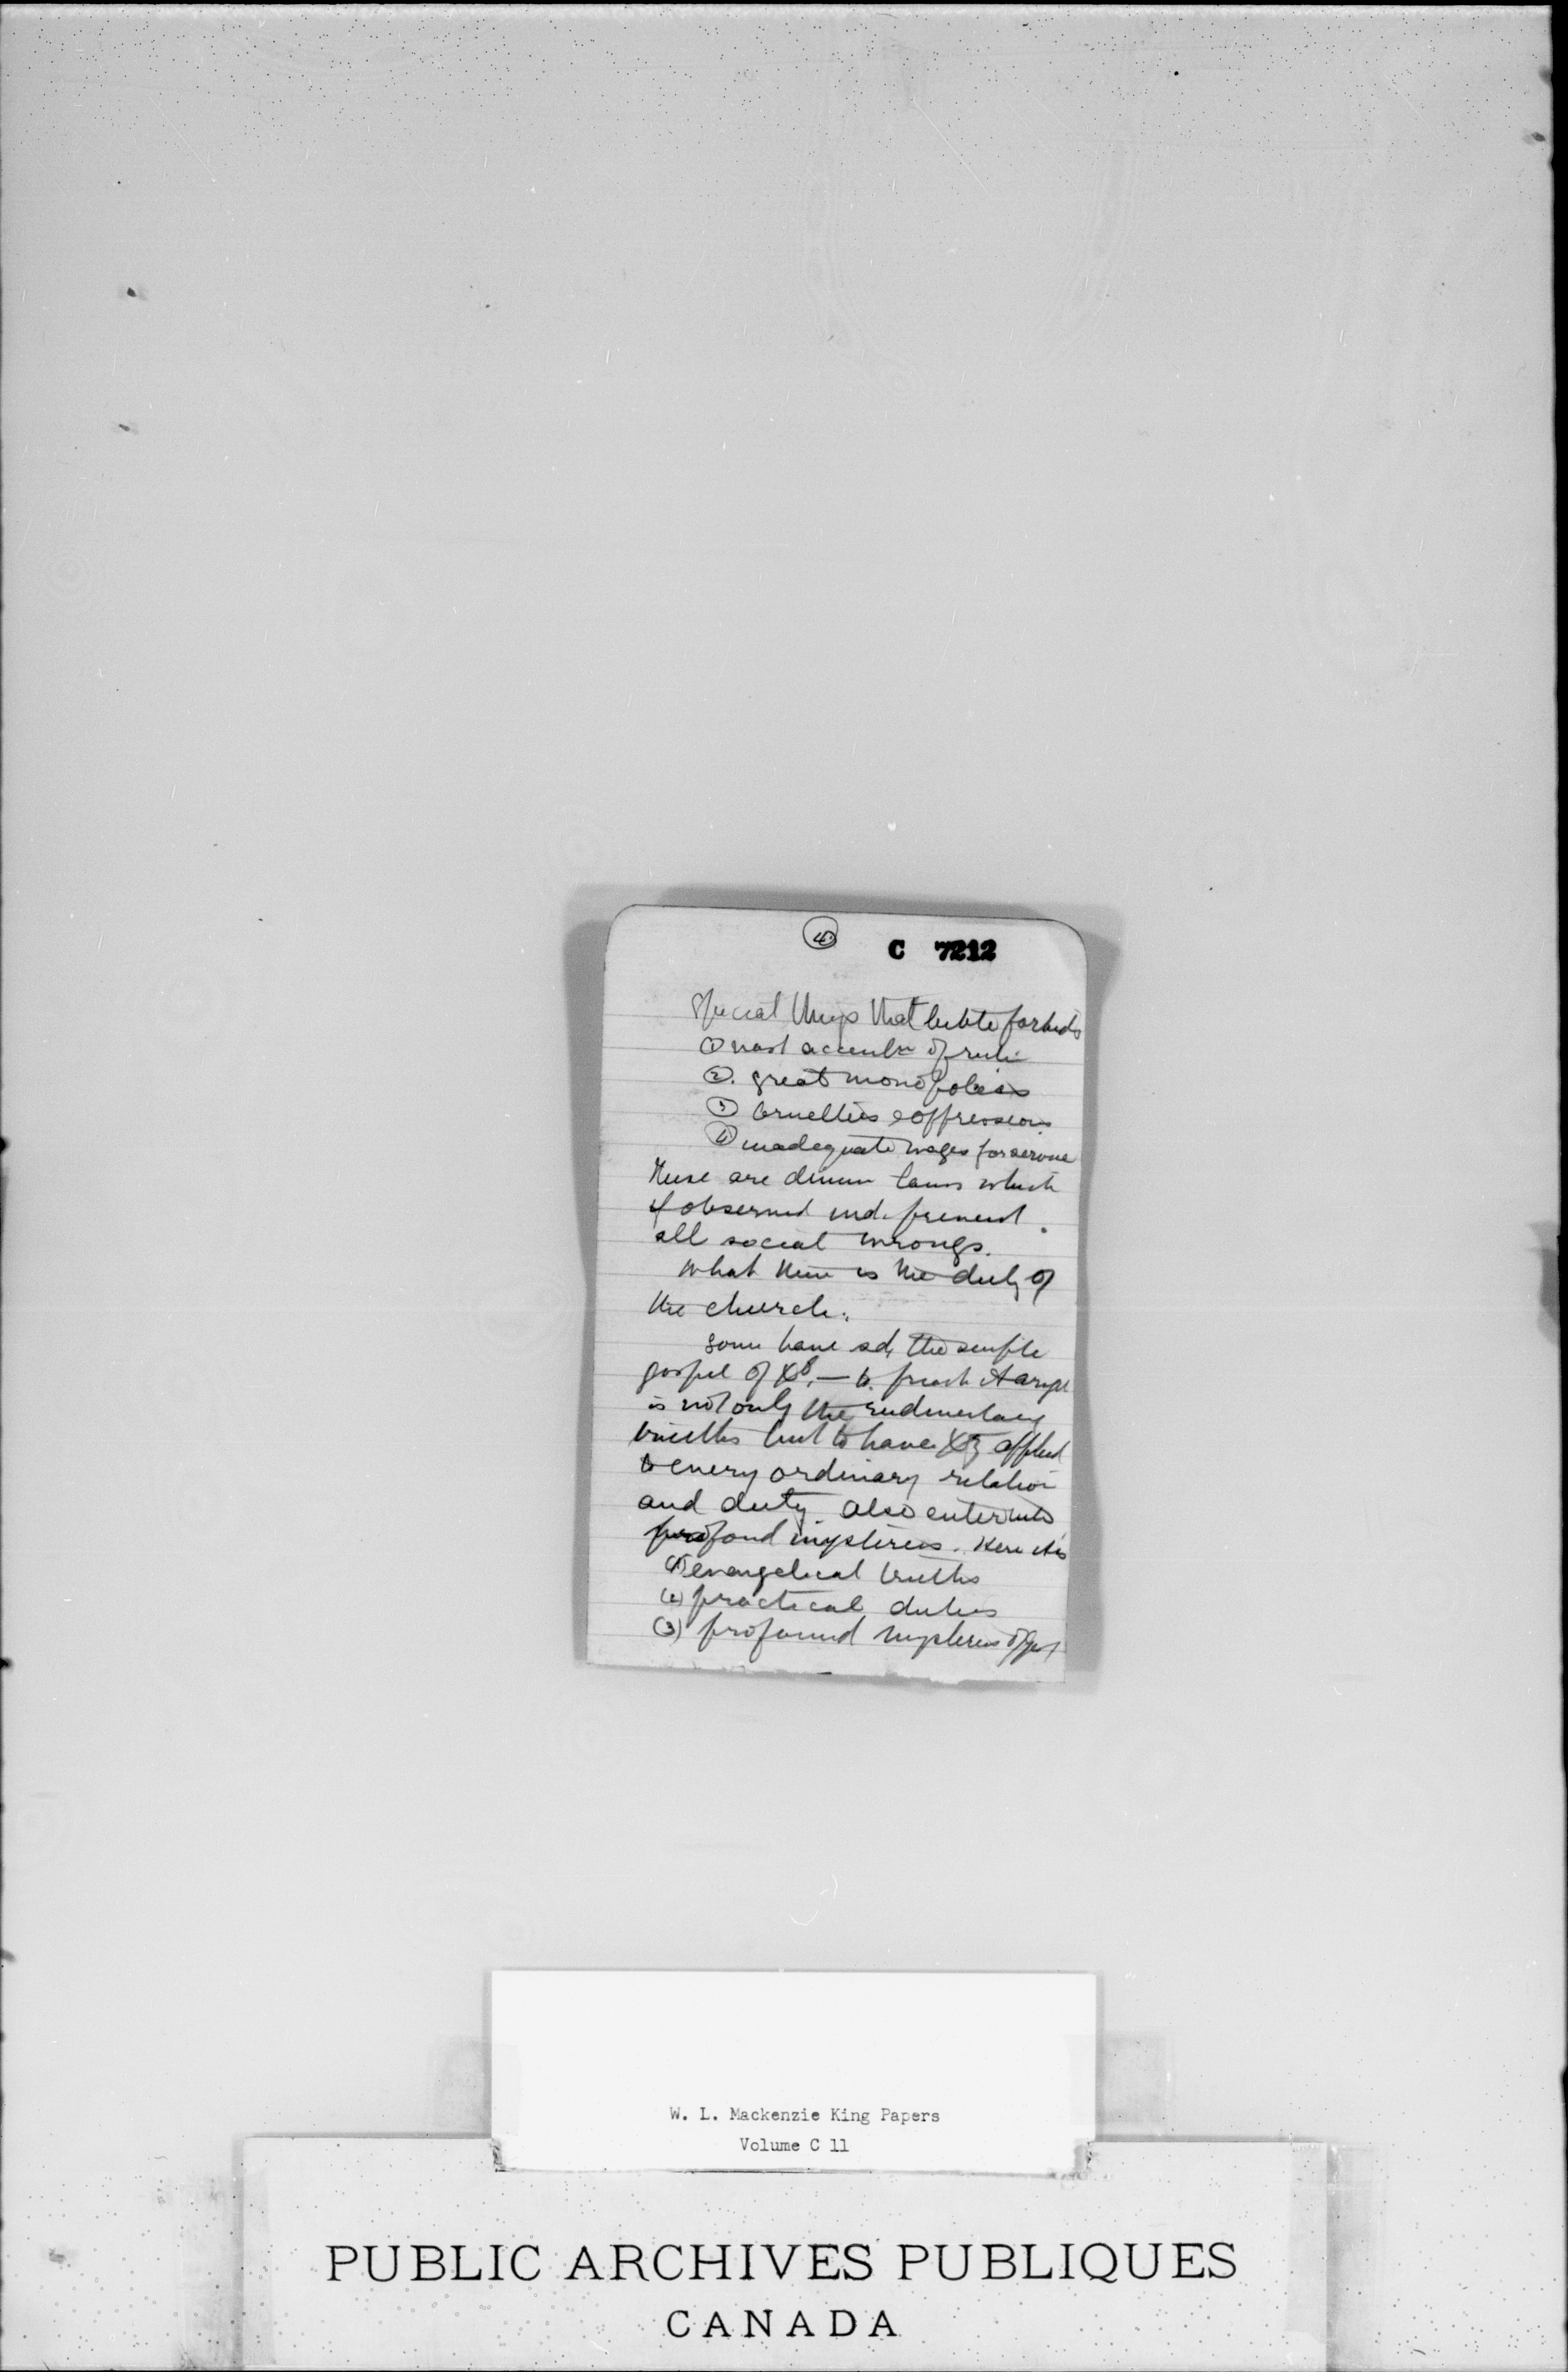 ④
C 7212
Special things that bible forbids
① vast accumltn of riches
②. great monopolies
③ Cruelties & oppressions
④ inadequate wages for service
These are divine laws which
if observed wd. prevent
all social wrongs.
What then is the duty of
the church.
Some have sd, the simple
gospel of Xt, — to preach it aright
is not only the rudimentary
truths but to have Xty applied
to every ordinary relation
and duty also enter into
profond mysteries. Here it is
(1) evangelical truths
(2) practical duties
(3) profound mysteries of
W. L. Mackenzie King Papers
Volume C 11
PUBLIC ARCHIVES PUBLIQUES
CANADA